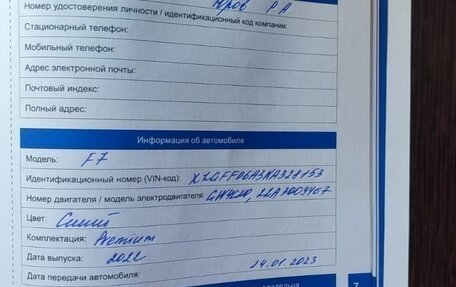 Юров Р.А.
Номер удостоверения личности / идентификационный код компании:
Стационарный телефон:
Мобильный телефон:
Адрес электронной почты:
Почтовый индекс:
Полный адрес:
Информация об автомобиле
Модель: F7
Идентификационный номер (VIN-код): XZGFF06A3NA328153
Номер двигателя / модель электродвигателя: GW4C20, 22A3009467
Цвет: Синий
Комплектация: Premium
Дата выпуска: 2022
Дата передачи автомобиля: 14.01.2023
7